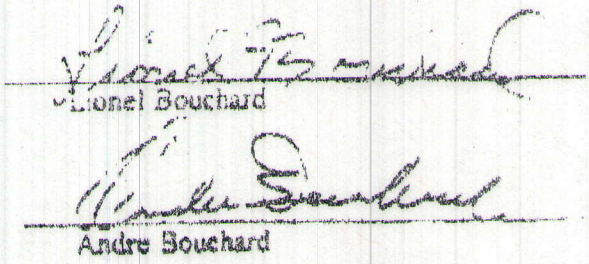 Lionel Bouchard
Lionel Bouchard
Andre Bouchard
Andre Bouchard